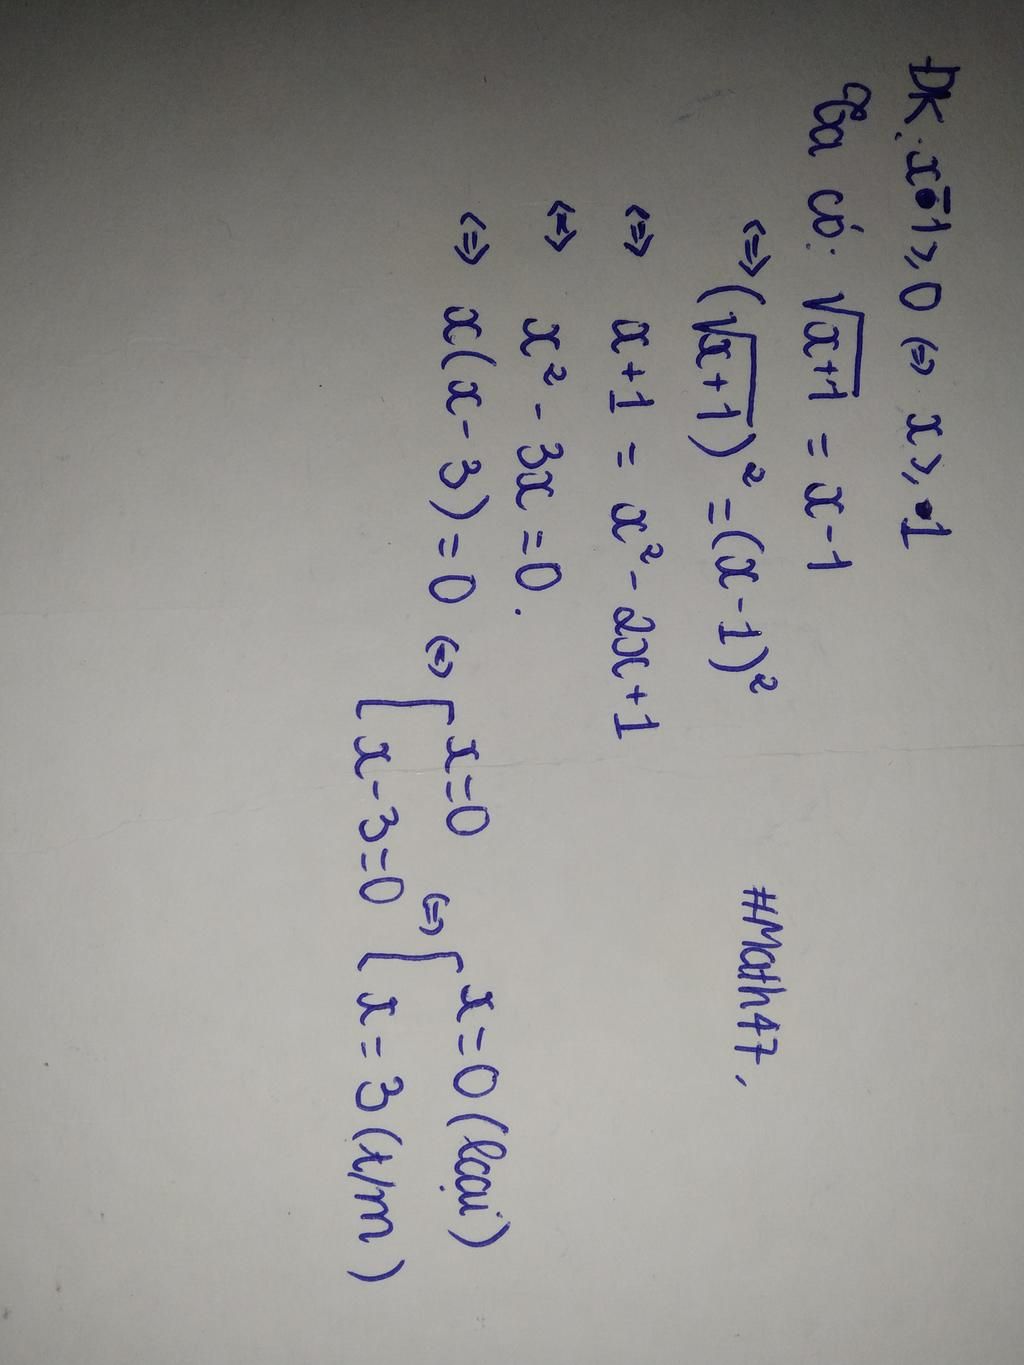 ĐK: x-1 ≥ 0 ⇔ x ≥ 1
Ta có: √(x+1) = x-1
⇔ (√(x+1))² = (x-1)²
⇔ x+1 = x² - 2x+1
⇔ x² - 3x = 0.
⇔ x(x-3) = 0 ⇔ [x=0 ⇔ [x=0 (loại)
[x-3=0 [x=3 (t/m)
#Math47.